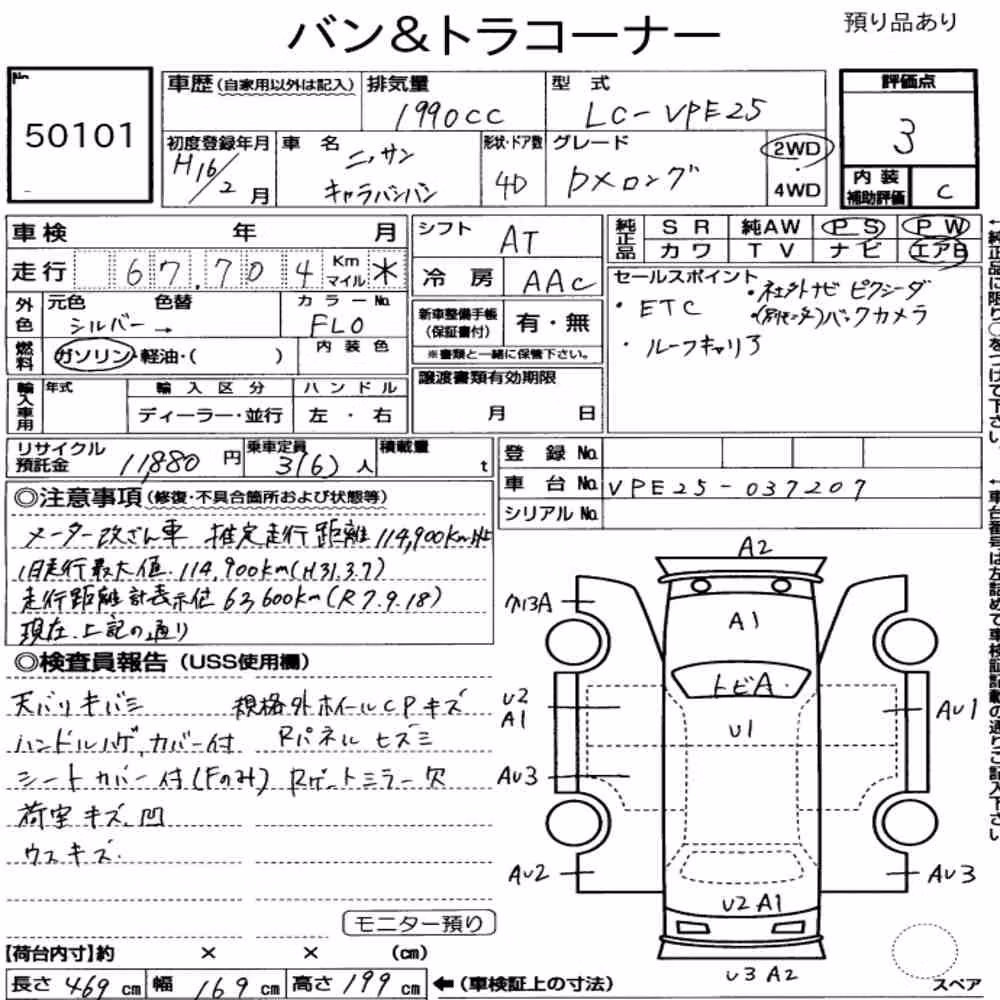 バン&トラコーナー
預り品あり
No.
50101
車歴(自家用以外は記入)
排気量
1990CC
型 式
LC-VPE25
評価点
3
初度登録年月
H16/2月
車 名
ニッサン
キャラバンバン
形状・ドア数
4D
グレード
DXロング
2WD
4WD
内 装
補助評価
C
車検 年 月
走行 67,704 Km マイル *
シフト
AT
冷 房
AAC
純正品
SR 純AW PS PW
カワ TV ナビ エアB
外色
元色 色替
シルバー →
カラーNo.
FL0
燃料
ガソリン・軽油・( )
内 装 色
新車整備手帳
(保証書付)
有・無
※書類と一緒に保管下さい。
セールスポイント
・ETC
・社外ナビ ピクシーダ
・バックカメラ
・ルーフキャリア
輸入車用
年式
輸 入 区 分
ディーラー・並行
ハ ン ド ル
左 ・ 右
譲渡書類有効期限
月 日
リサイクル
預託金
11,880 円
乗車定員
3(6)人
積載量
t
登 録 No.
車 台 No.
VPE25-037207
シリアル No.
◎注意事項(修復・不具合箇所および状態等)
メーター改ざん車 推定走行距離 114,900km
旧走行最大値 114,900km(H31.3.7)
走行距離計表示値 63,600km(R7.9.18)
現在、上記の通り
◎検査員報告(USS使用欄)
天バリキバミ 規格外ホイールCPキズ
ハンドルハゲ,カバー付 Rパネルヒズミ
シートカバー付(Fのみ) Rゲートミラー欠
荷室キズ、凹
ウスキズ.
モニター預り
A2
A1
トビA
U1
U2
A1
AU1
AU3
AU2
AU3
U2 A1
U3 A2
スペア
【荷台内寸】約 × × (cm)
長さ 469 cm 幅 169 cm 高さ 199 cm
←(車検証上の寸法)
←純正品に限り○をつけて下さい。
←車台番号は左詰めで車検証記載の通りご記入下さい